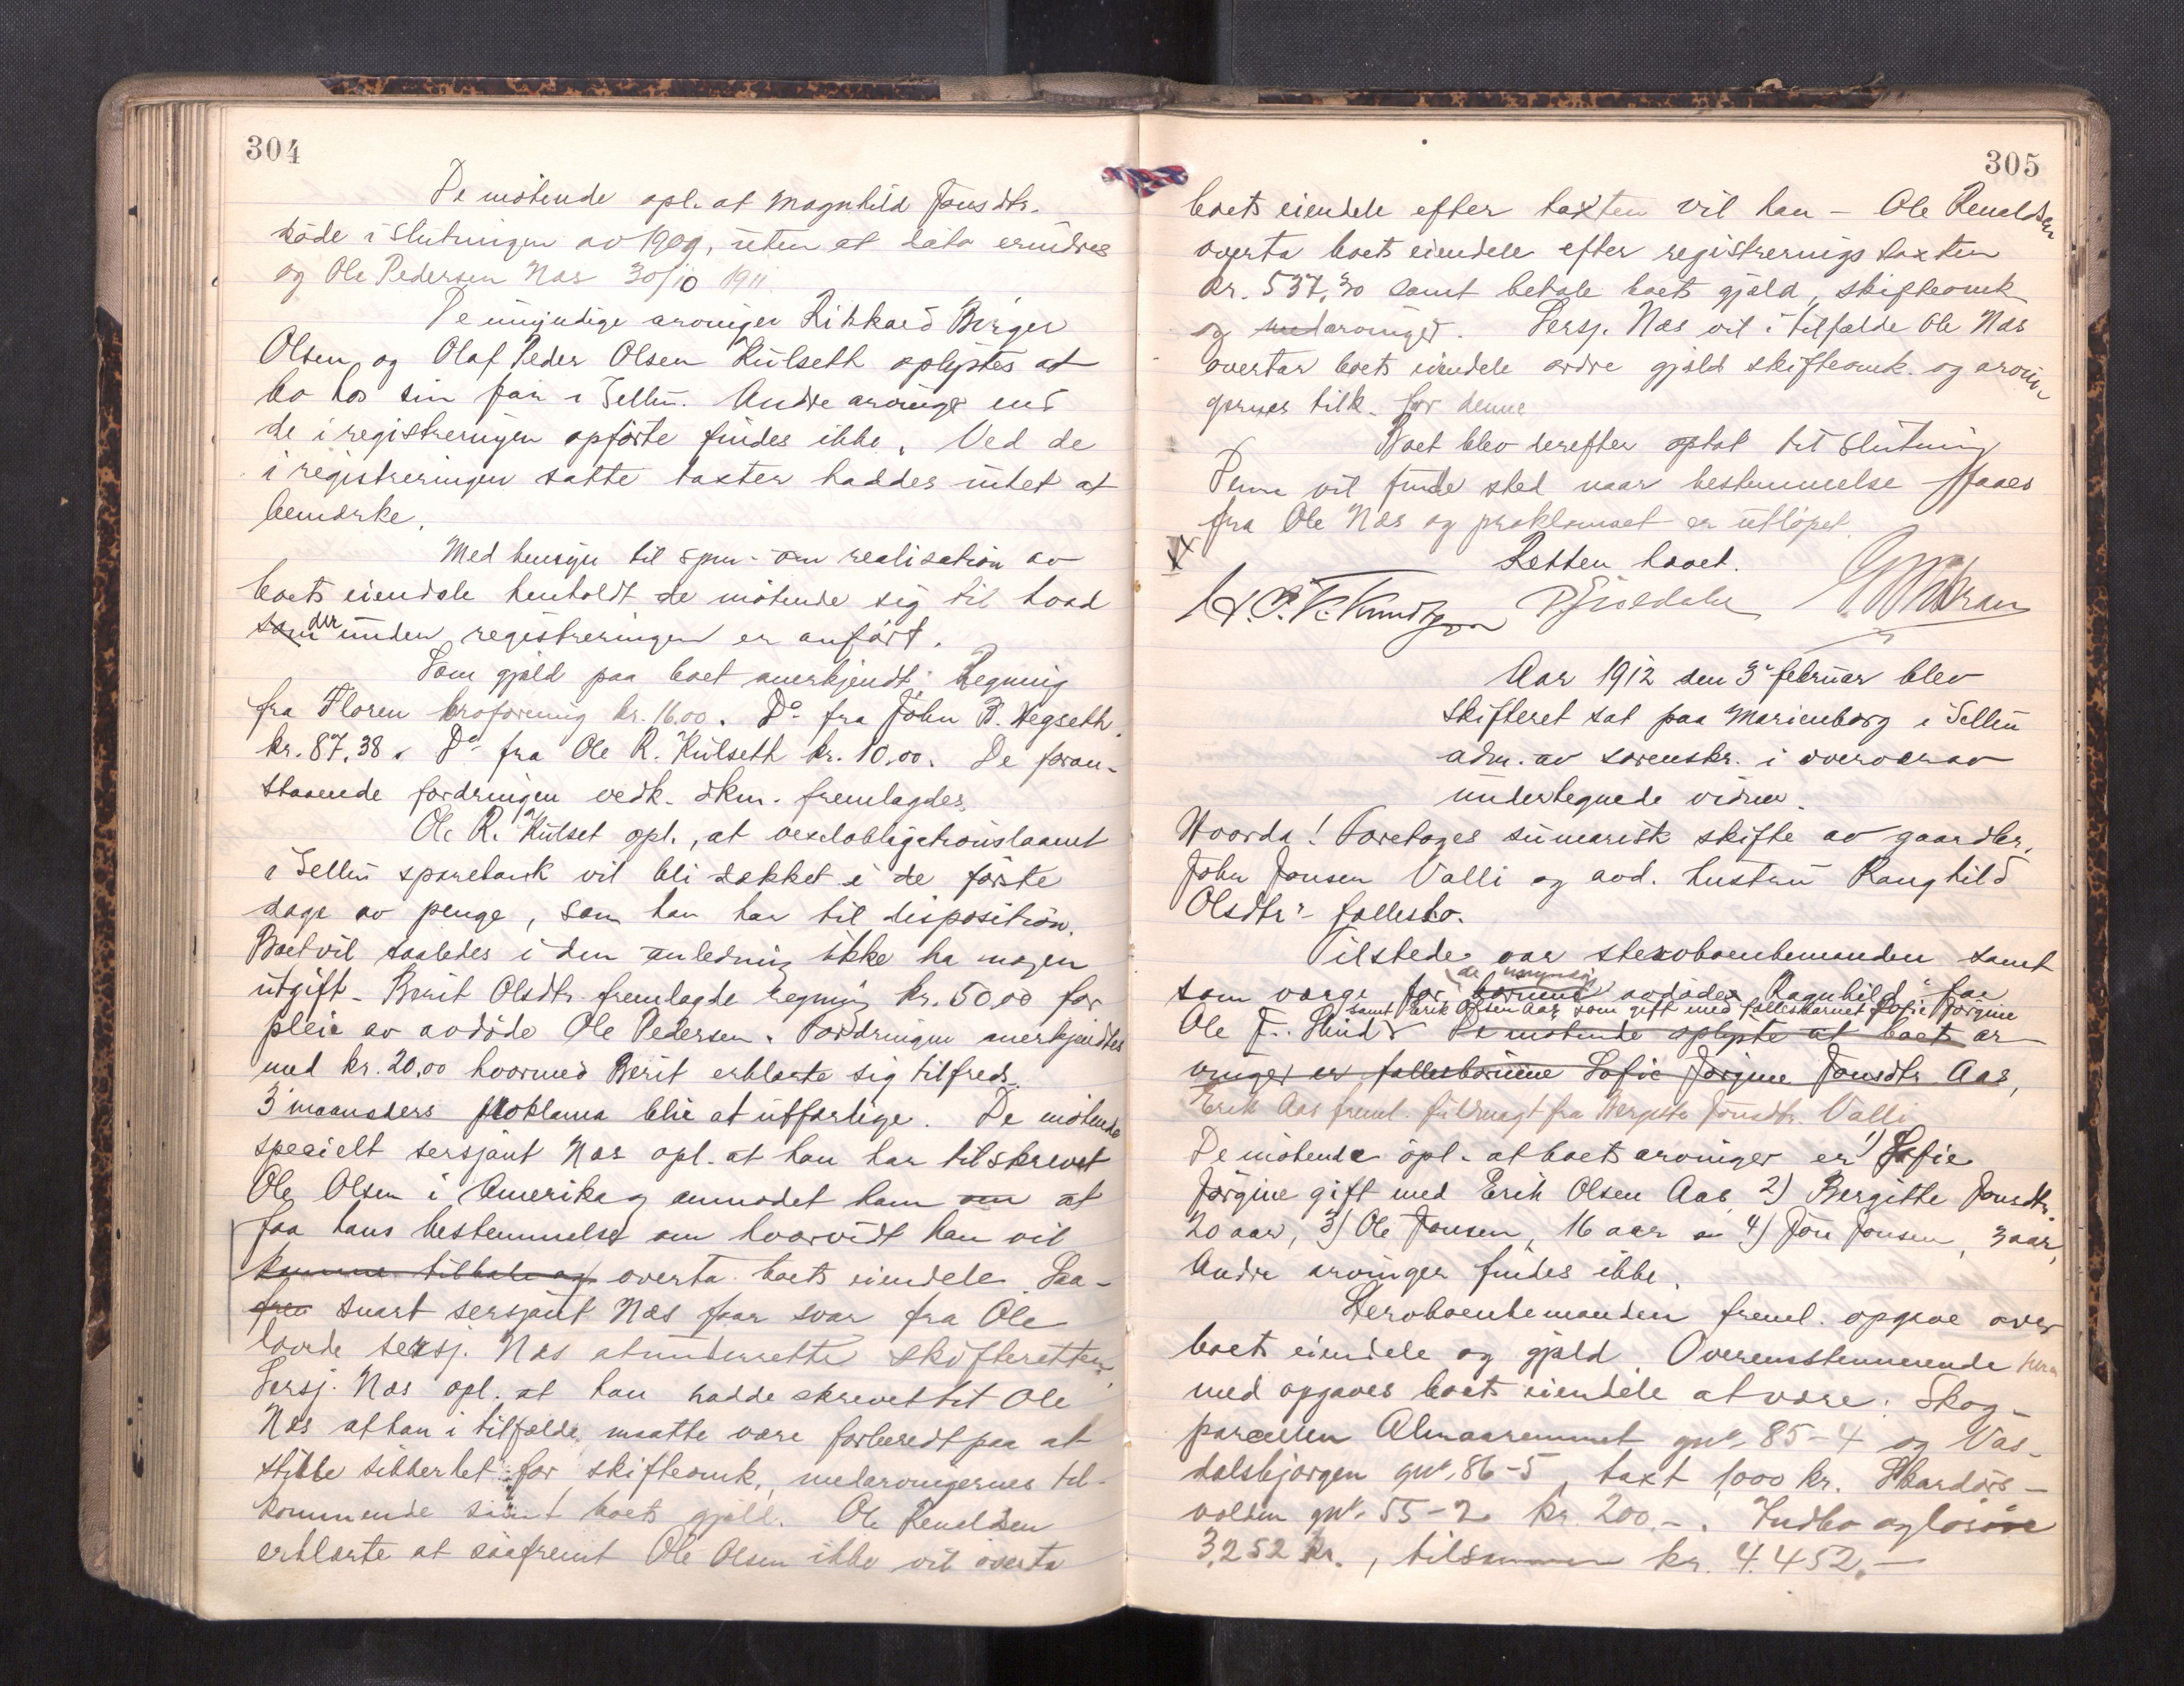 304
De møtende opl. at Magnhild Jonsdtr.
døde i slutningen av 1909, uten at dato erindres
og Ole Pedersen Næs 30/10 1911.
De umyndige arvinger Rikkard Birger
Olsen og Olaf Peder Olsen Kulseth oplystes at
bo hos sin far i Selbu. Andre arvinger end
de i registreringen opførte findes ikke. Ved de
i registreringen satte taxter haddes intet at
bemerke.
Med hensyn til spm. om realisation av
boets eiendele henholdt de møtende sig til hvad
som der under registreringen er anført.
Som gjæld paa boet anerkjendt: Regning
fra Floren kr. 16.00. Do fra John B. Hegseth
kr. 87.38. Do fra Ole R. Kulseth kr. 10.00. De foran-
staaende fordringen vedk. dkm. fremlagdes.
Ole R. Kulset opl., at vexelobligationslaanet
i Selbu sparebank vil bli dækket i de første
dage av penge, som han har til disposition.
Boet vil saaledes i den anledning ikke ha nogen
utgift. Berit Olsdtr. fremlagde regning kr. 50.00 for
pleie av avdøde Ole Pedersen. Fordringen anerkjendtes
med kr. 20.00 hvormed Berit erklærte sig tilfreds.
3 maaneders proklama blir at utfærdige. De møtende
specielt sersjant Næs opl. at han har tilskrevet
Ole Olsen i Amerika og anmodet ham om at
faa hans bestemmelse om hvorvidt han vil
komme tilbake og overta boets eiendele. Saa-
snart sersjant Næs faar svar fra Ole
lovde sersj. Næs at underrette skifteretten.
Sersj. Næs opl. at han hadde skrevet til Ole
Næs at han i tilfælde maatte være forberedt paa at
stille sikkerhet for skifteomk., medarvingernes til-
kommende samt boets gjæld. Ole Renaldsen
erklærte at saafremt Ole Olsen ikke vil overta
305
boets eiendele efter taxten vil han - Ole Renaldsen
overta boets eiendele efter registreringstaxten
kr. 537,30 samt betale boets gjæld, skifteomk
og medarvinger. Sersj. Næs vil i tilfælde Ole Næs
overtar boets eiendele ordre gjæld skifteomk. og arvin-
gernes tilk. for denne
Boet blev derefter optat til slutning
Denne vil finde sted naar bestemmelse haaes
fra Ole Næs og proklamaet er utløpet.
Retten hævet.
Aar 1912 den 3. februar blev
skifteret sat paa Marienborg i Selbu
adm. av sorenskr. i overvær av
undertegnede vidner.
Hvorda! Foretoges sumarisk skifte av gaardbr.
John Jonsen Valli og avd. hustru Ranghild
Olsdtrs fællesbo.
Tilstede var stervboenkemanden samt
som værge for de umyndige barnene avdødes Ragnhilds far
samt Erik Olsen Aas som gift med fællesbarnet Sofie Jørgine
Ole J. Slind De møtende oplyste at boets ar
vinger er fællesbarnene Sofie Jørgine Jonsdtr Aas,
Erik Aas freml. fuldmagt fra Bergitte Jonsdtr. Valli
De møtende opl. at boets arvinger er 1) Sofie
Jørgine gift med Erik Olsen Aas, 2) Bergitte Jonsdtr.
20 aar, 3) Ole Jonsen, 16 aar 4) Jon Jonsen, 3 aar,
Andre arvinger findes ikke.
Stervboenkemanden freml. opgave over
boets eiendele og gjæld. Overensstemmende her
med opgaves boets eiendele at være: Skog-
parcellen gnr. 85-4 og Vas-
dalsbjørgen gnr. 86-5, taxt 1,000 kr. Skardørs-
volden gnr. 55-2 kr. 200.-. Indbo og løsøre
3,252 kr., tilsammen kr. 4.452.-